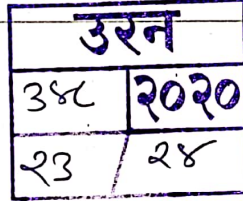 उरन
३४८ २०२०
२३ / २४